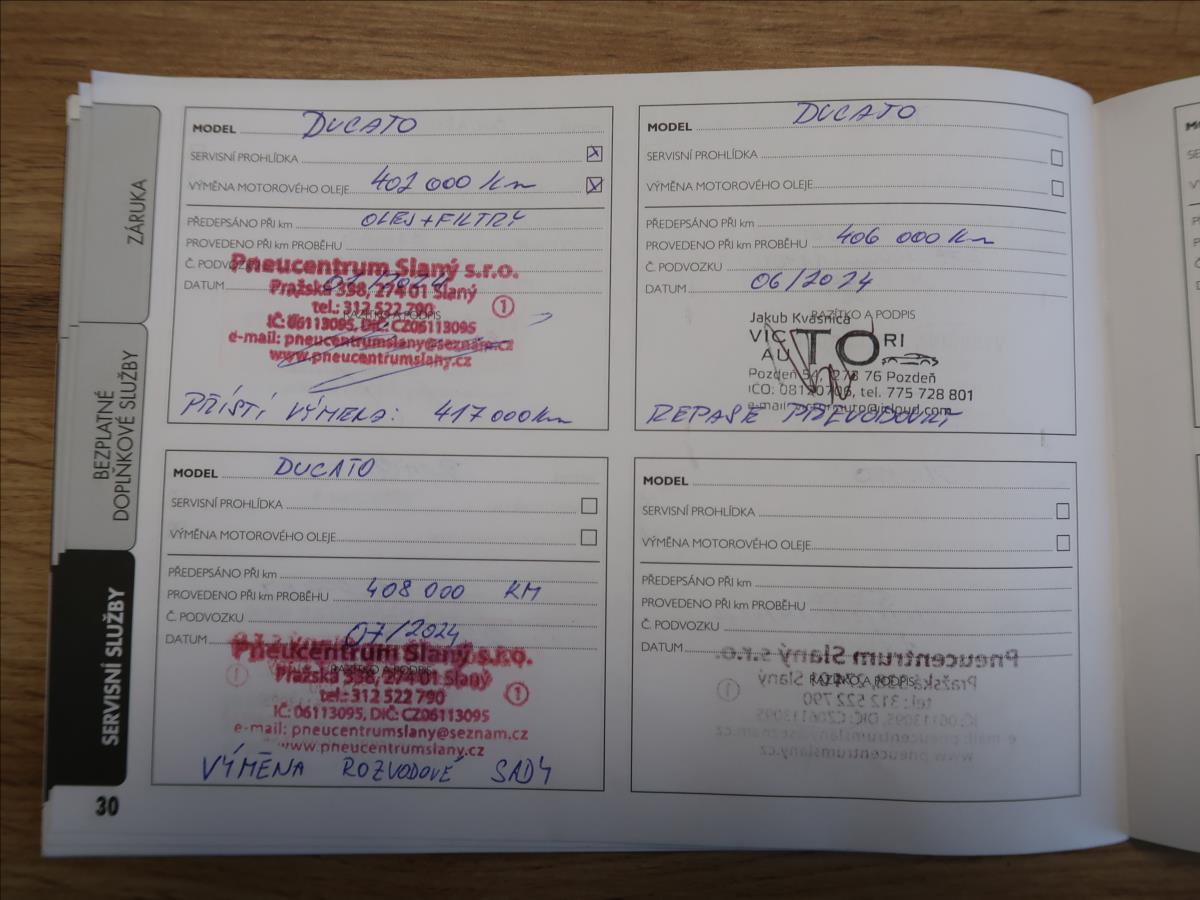 ZÁRUKA
BEZPLATNÉ
DOPLŇKOVÉ SLUŽBY
SERVISNÍ SLUŽBY
30
MODEL DUCATO
SERVISNÍ PROHLÍDKA
VÝMĚNA MOTOROVÉHO OLEJE 402 000 Km
PŘEDEPSÁNO PŘI km OLEJ+FILTRY
PROVEDENO PŘI km PROBĚHU
Č. PODVOZKU
DATUM
Pneucentrum Slaný s.r.o.
Pražská 338, 274 01 Slaný
tel.: 312 522 790
RAZÍTKO A PODPIS
IČ: 06113095, DIČ: CZ06113095
e-mail: pneucentrumslany@seznam.cz
www.pneucentrumslany.cz
1
PŘÍŠTÍ VÝMENA: 417 000km
MODEL DUCATO
SERVISNÍ PROHLÍDKA
VÝMĚNA MOTOROVÉHO OLEJE
PŘEDEPSÁNO PŘI km
PROVEDENO PŘI km PROBĚHU 406 000 Km
Č. PODVOZKU
DATUM 06/2024
RAZÍTKO A PODPIS
Jakub Kvasnica
VICTORI
AUTO
Pozdeň 54, 273 76 Pozdeň
IČO: tel. 775 728 801
REPASE PŘEVODOVKY
MODEL DUCATO
SERVISNÍ PROHLÍDKA
VÝMĚNA MOTOROVÉHO OLEJE
PŘEDEPSÁNO PŘI km
PROVEDENO PŘI km PROBĚHU 408 000 KM
Č. PODVOZKU
DATUM 07/2024
Pneucentrum Slaný s.r.o.
RAZÍTKO A PODPIS
Pražská 338, 274 01 Slaný
tel.: 312 522 790
IČ: 06113095, DIČ: CZ06113095
e-mail: pneucentrumslany@seznam.cz
www.pneucentrumslany.cz
1
VÝMĚNA ROZVODOVÉ SADY
MODEL
SERVISNÍ PROHLÍDKA
VÝMĚNA MOTOROVÉHO OLEJE
PŘEDEPSÁNO PŘI km
PROVEDENO PŘI km PROBĚHU
Č. PODVOZKU
DATUM
RAZÍTKO A PODPIS